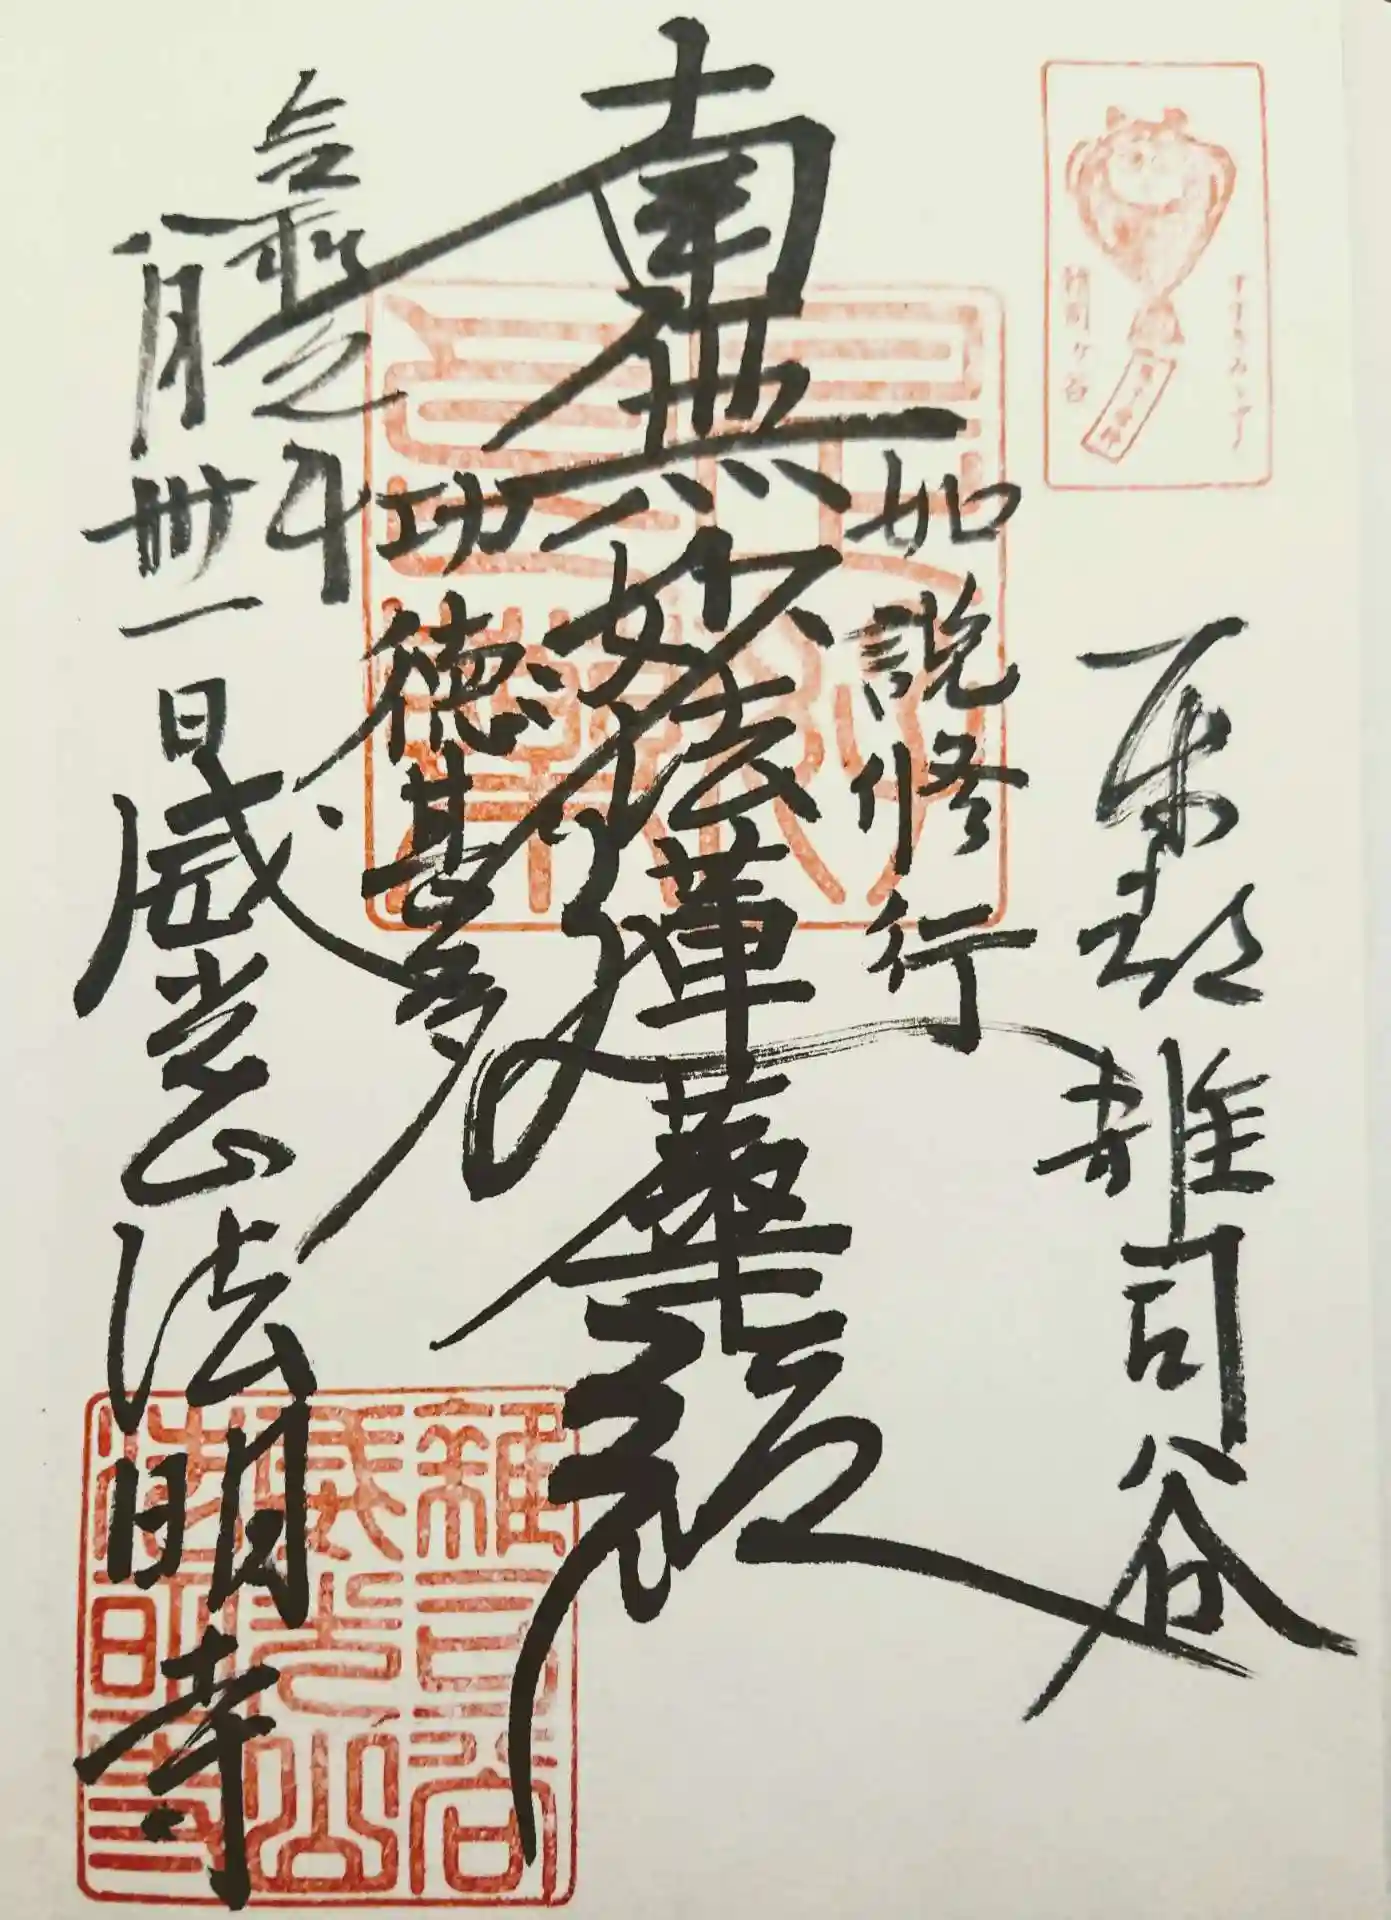 すすきみゝずく
雑司ヶ谷
東都雑司谷
如説修行
南無妙法蓮華經
功徳甚多
令和元年
八月卅一日
威光山法明寺
雑司谷
威光山
法明寺